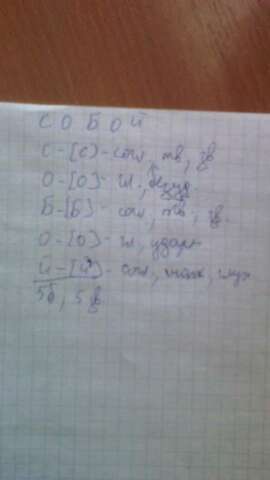 С О Б О Й
С - [С] - согл, тв, зв
О - [О] - гл, безуд.
Б - [Б] - согл, тв, зв.
О - [О] - гл, ударн
Й - [Й'] - согл, мягк, глух
5б, 5 зв